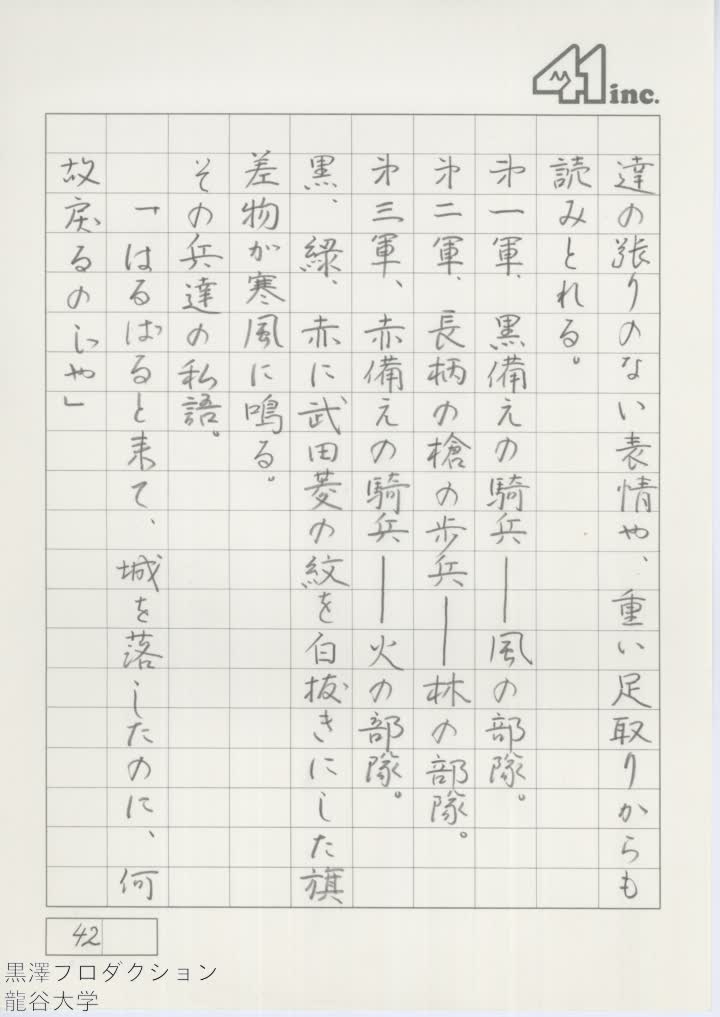 41 inc.
達の張りのない表情や、重い足取りからも
読みとれる。
才一軍、黒備えの騎兵――風の部隊。
才二軍、長柄の槍の歩兵――林の部隊。
才三軍、赤備えの騎兵――火の部隊。
黒、緑、赤に武田菱の紋を白抜きにした旗
差物が寒風に鳴る。
その兵達の私語。
「はるばると来て、城を落したのに、何
故戻るのじゃ」
42
黒澤フロダクション
龍谷大学